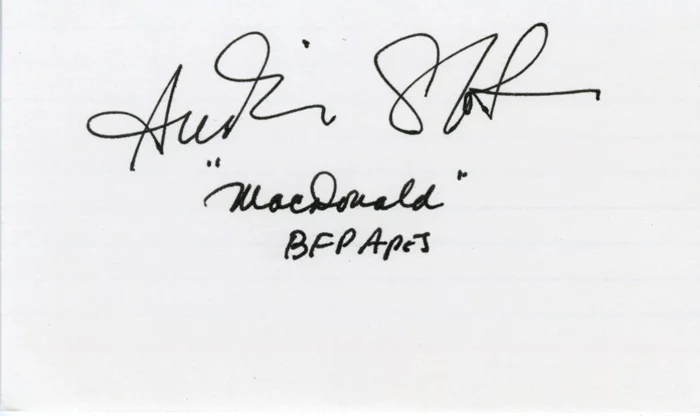 Austin Stoker
"MacDonald"
BFP Apes